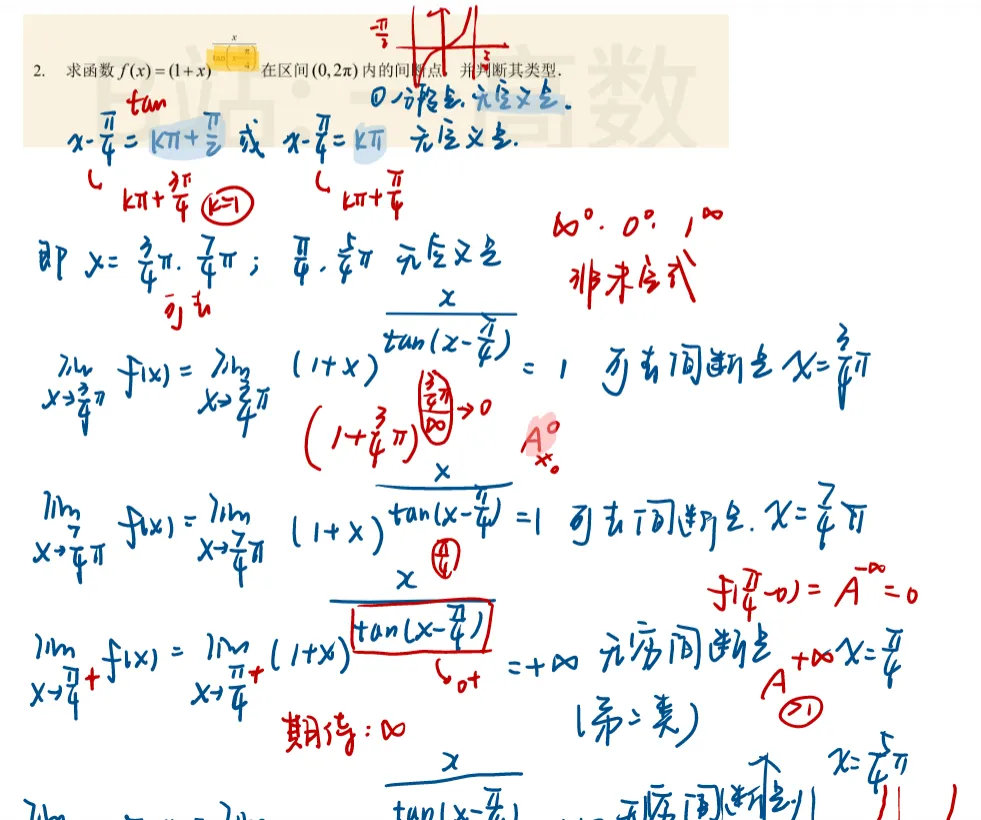 -π/2 π/2
2. 求函数 f(x)=(1+x)^{x/tan(x-π/4)} 在区间(0,2π)内的间断点，并判断其类型.
tan ① 分段点、无定义点。
x-π/4 = kπ+π/2 或 x-π/4 = kπ 无定义点.
kπ+3π/4 k=1 kπ+π/4
∞^0 . 0^0 . 1^∞
即 x= 3/4π. 7/4π ; π/4 . 5/4π 无定义点
可去 非未定式
lim_{x→3/4π} f(x) = lim_{x→3/4π} (1+x)^{x/tan(x-π/4)} = 1 可去间断点 x=3/4π
(1+3/4π)^{3/4π/∞}→0 A^0
lim_{x→7/4π} f(x)= lim_{x→7/4π} (1+x)^{x/tan(x-π/4)} =1 可去间断点. x=7/4π
π/4
f(π/4-0) = A^{-∞} =0
lim_{x→π/4+} f(x) = lim_{x→π/4+} (1+x)^{x/tan(x-π/4)} = +∞ 无穷间断点 x=π/4
0+ A^{+∞} >1
期待: ∞ (第二类)
x=5/4π
lim lim x/tan(x-π/4) 无穷间断点